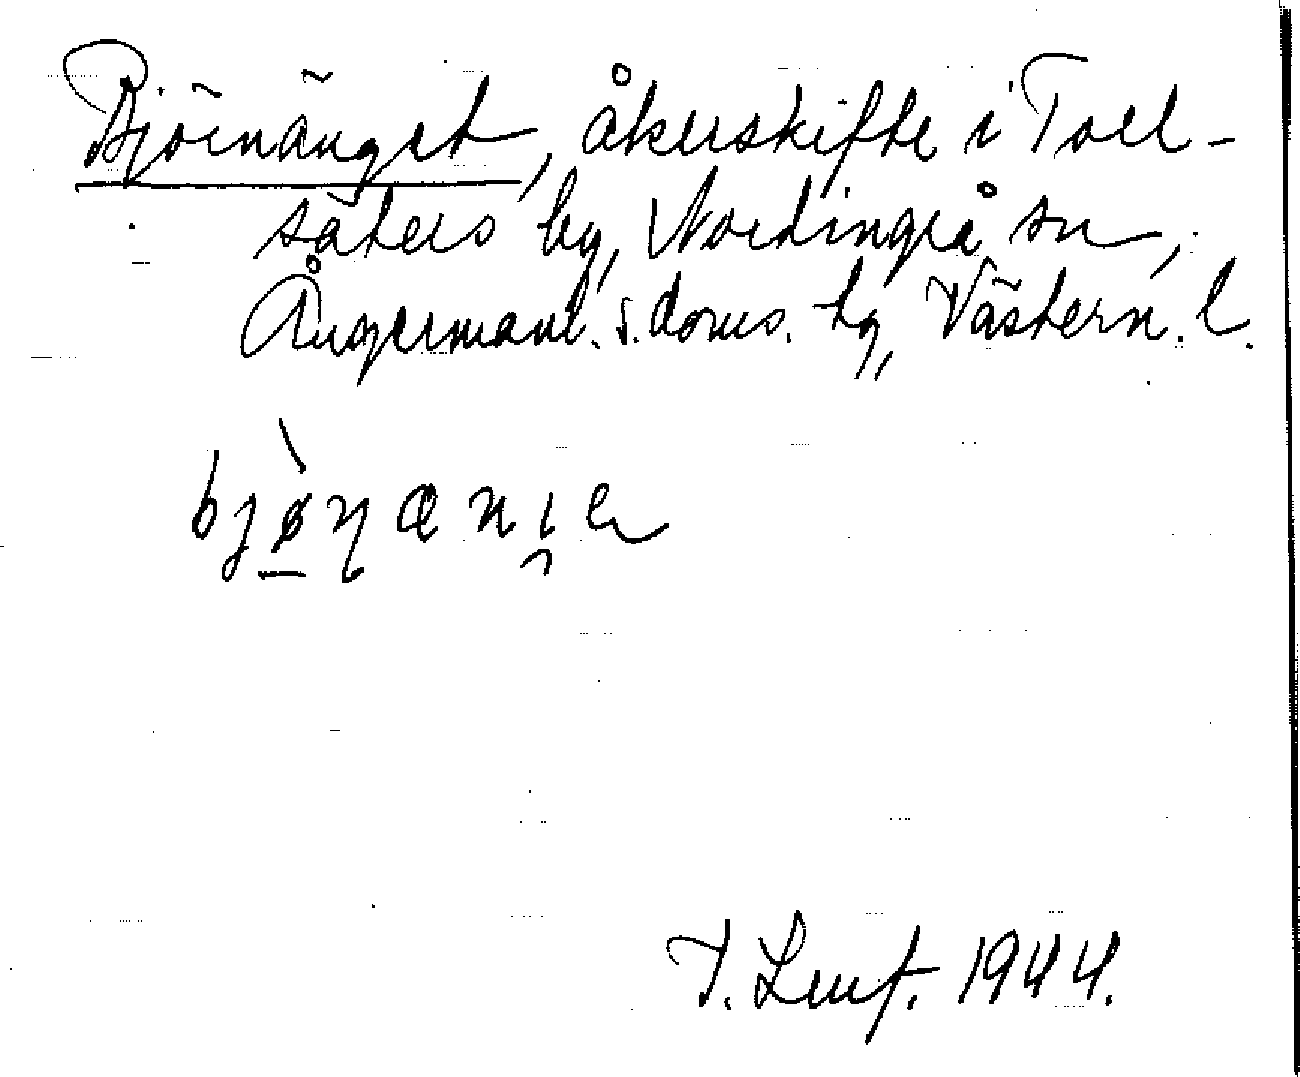 Björnänget, åkerskifte i Torr-
säters by, Nordingrå sn,
Ångermanl. s. doms. tg, Västern. l.
bjø̱̀ɳænı̯e
T. Lenf. 1944.